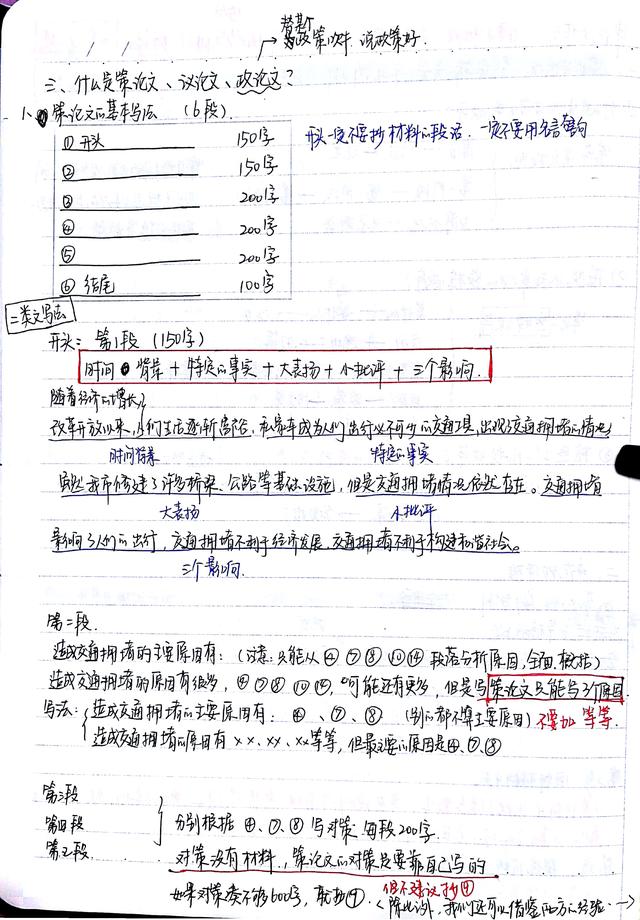 替某个
政策吹牛 说政策好.
三、什么是策论文、议论文、政论文?
1、策论文的基本写法 (6段).
① 开头 150字
② 150字
③ 200字
④ 200字
⑤ 200字
⑥ 结尾 100字
开头一定不要抄材料的段落. 一定不要用名言警句
二类文写法
开头: 第1段 (150字)
时间背景 + 特定的事实 + 大表扬 + 小批评 + 三个影响.
随着经济的增长,
改革开放以来,人们生活逐渐富裕,私家车成为人们出行必不可少的交通工具,出现了交通拥堵的情况
时间背景 特定的事实
虽然我市修建了许多桥梁、公路等基础设施,但是交通拥堵情况依然存在。交通拥堵
大表扬 小批评
影响了人们的出行,交通拥堵不利于经济发展,交通拥堵不利于构建和谐社会。
三个影响.
第二段.
造成交通拥堵的主要原因有: (注意:只能从④⑦⑧⑩⑭段落分析原因,全面.概括)
造成交通拥堵的原因有很多, ④⑦⑧⑩⑭, 可能还有更多, 但是写策论文只能写3个原因
写法: 造成交通拥堵的主要原因有: ④、⑦、⑧ (别的都不算主要原因) 不要加 等等.
造成交通拥堵的原因有××、××、××等等, 但最主要的原因是④、⑦、⑧
第三段
第四段
第五段
分别根据 ④、⑦、⑧ 写对策. 每段200字.
对策没有材料, 策论文的对策是要靠自己写的
但不建议抄④
如果对策凑不够600字, 就抄④. (除此以外, 我们还可以借鉴西方的经验. →)